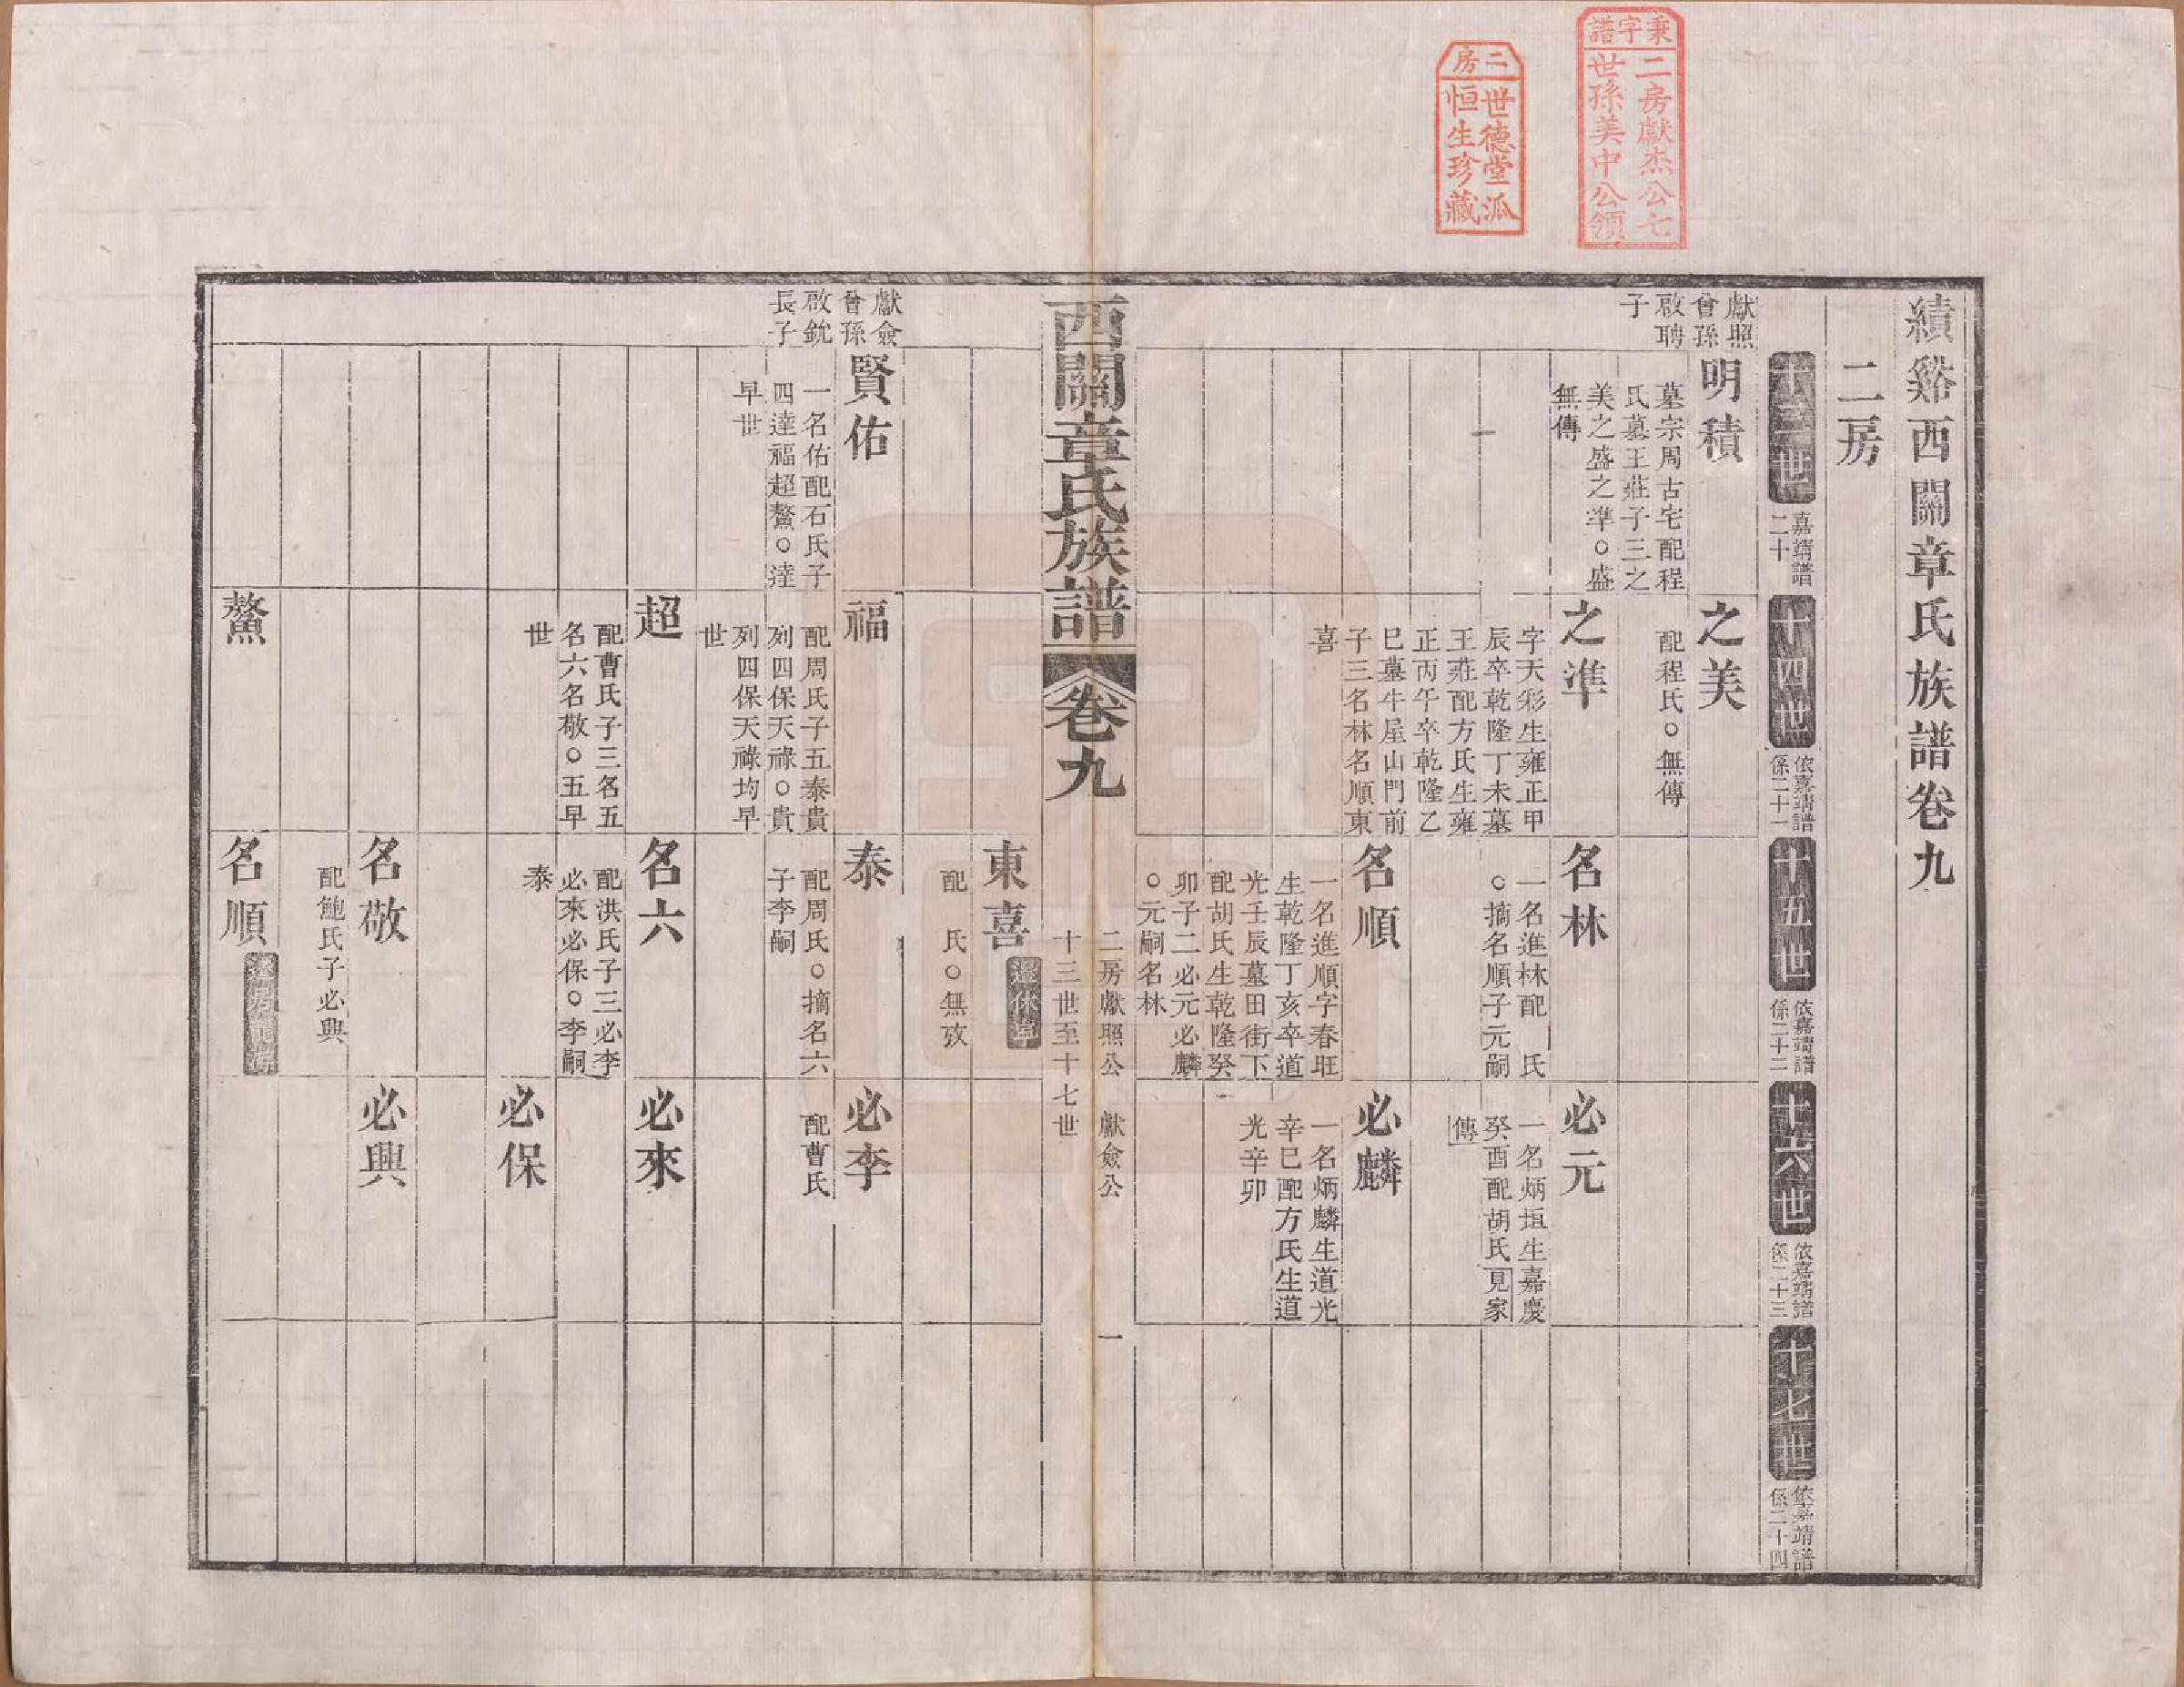 績谿西關章氏族譜卷九
二房
秉字譜
二房獻杰公七
世孫美中公領
二房
世德堂派
恒生珍藏
十三世
嘉靖譜
二十
十四世
依嘉靖譜
係二十一
十五世
依嘉靖譜
係二十二
十六世
依嘉靖譜
係二十三
十七世
依嘉靖譜
係二十四
獻照
曾孫
啟聘
子
明積
墓宗周古宅配程
氏墓王莊子三之
美之盛之準○盛
無傳
之美
配程氏○無傳
之準
字天彩生雍正甲
辰卒乾隆丁未墓
王莊配方氏生雍
正丙午卒乾隆乙
巳墓牛屋山門前
子三名林名順東
喜
名林
一名進林配 氏
○摘名順子元嗣
必元
一名炳垣生嘉慶
癸酉配胡氏見家
傳
名順
一名進順字春旺
生乾隆丁亥卒道
光壬辰墓田街下
配胡氏生乾隆癸
卯子二必元必麟
○元嗣名林
必麟
一名炳麟生道光
辛巳配方氏生道
光辛卯
西關章氏族譜
卷九
二房獻照公 獻僉公
十三世至十七世
一
東喜
遷休寧
配 氏○無攷
獻僉
曾孫
啟銳
長子
賢佑
一名佑配石氏子
四達福超鰲○達
早世
福
配周氏子五泰貴
列四保天祿○貴
列四保天祿均早
世
泰
配周氏○摘名六
子李嗣
必李
配曹氏
超
配曹氏子三名五
名六名敬○五早
世
名六
配洪氏子三必李
必來必保○李嗣
泰
必來
必保
名敬
配鮑氏子必興
必興
鰲
名順